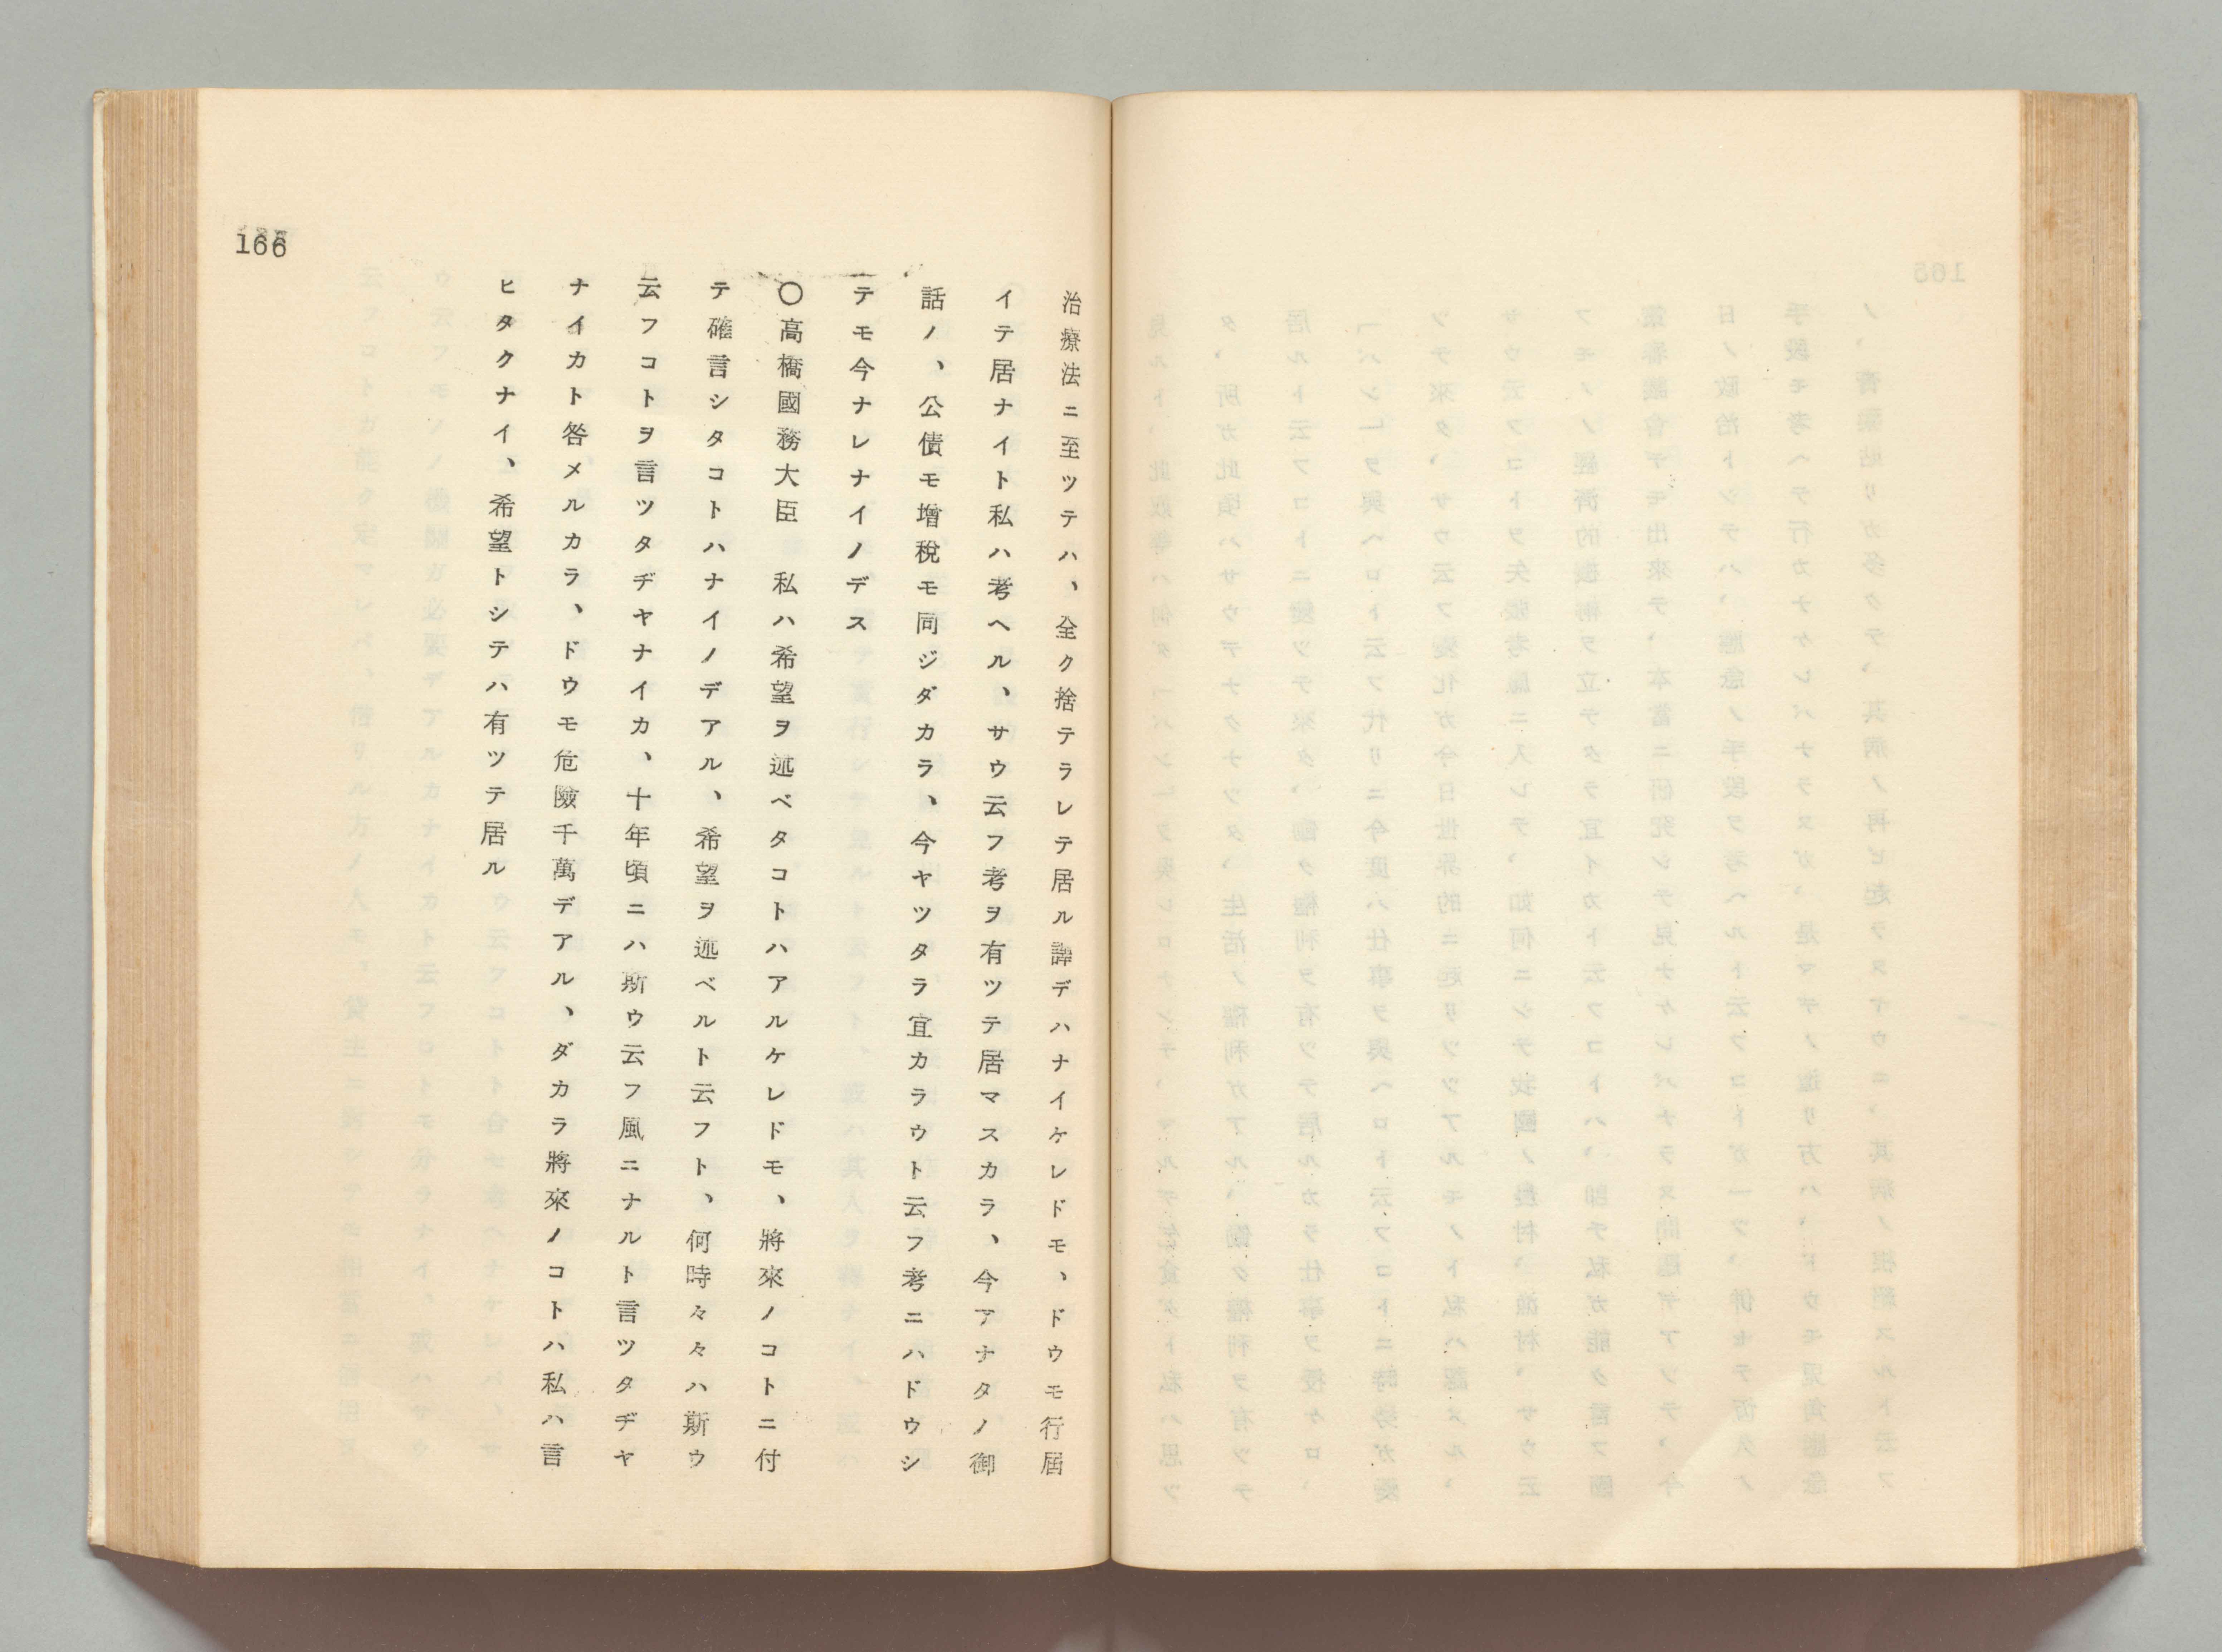 治療法ニ至ツテハ、全ク捨テラレテ居ル譯デハナイケレドモ、ドウモ行屆
イテ居ナイト私ハ考ヘル、サウ云フ考ヲ有ツテ居マスカラ、今アナタノ御
話ノ、公債モ增稅モ同ジダカラ、今ヤツタラ宜カラウト云フ考ニハドウシ
テモ今ナレナイノデス
〇高橋國務大臣 私ハ希望ヲ述ベタコトハアルケレドモ、將來ノコトニ付
テ確言シタコトハナイノデアル、希望ヲ述ベルト云フト、何時々々ハ斯ウ
云フコトヲ言ツタヂヤナイカ、十年頃ニハ斯ウ云フ風ニナルト言ツタヂヤ
ナイカト咎メルカラ、ドウモ危險千萬デアル、ダカラ將來ノコトハ私ハ言
ヒタクナイ、希望トシテハ有ツテ居ル
166